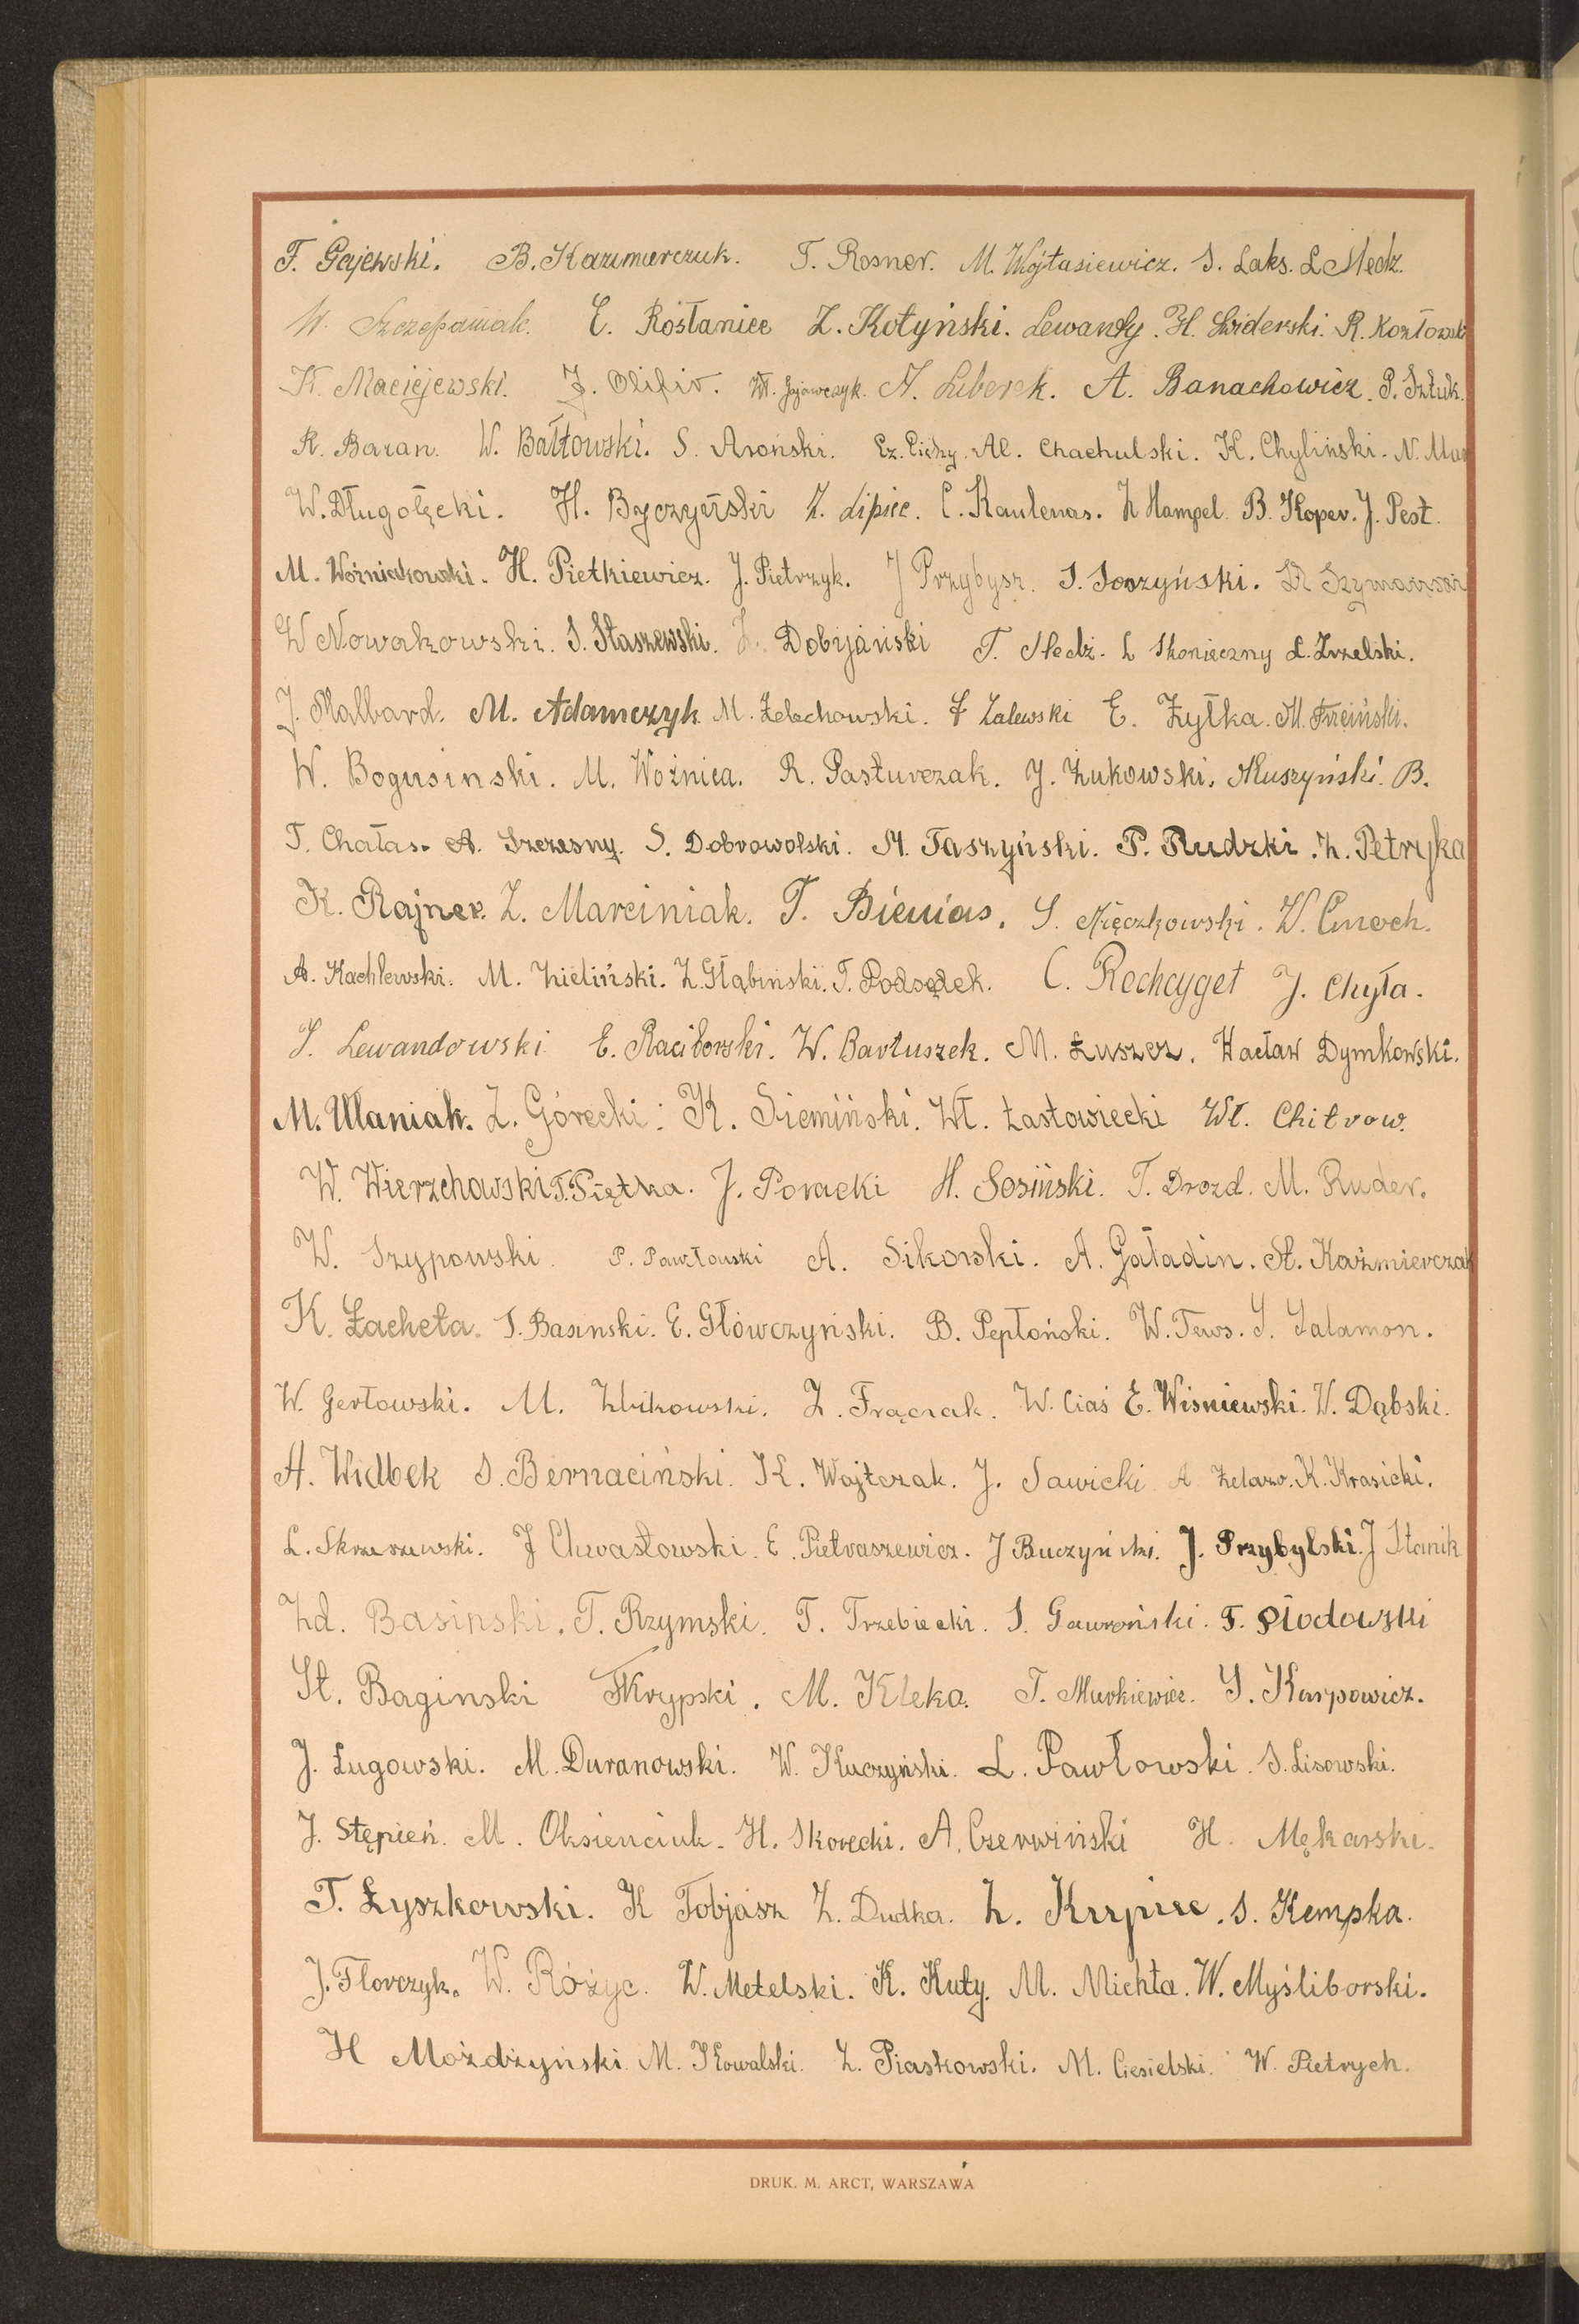 F. Gajewski. B. Kazimierczuk. T. Rosner. M. Wojtasiewicz. S. Laks. L Śledz.
W. Szczepaniak. E. Rosłaniec Z. Kotyński. Lewandy. H. Świderski. R. Kozłowski
K. Maciejewski. J. Olifir. Wł. Gajowczyk. A. Luberek. A. Banachowicz. P. Sztuk.
R. Baran. W. Bałtowski. S. Aroński. Al. Chachulski. K. Chyliński. N. Mar
W. Długołęcki. H. Byczyński Z. Lipiec. C. Kaulenas. Z Hampel. B. Koper. J. Pest.
M. Woźniakowski. H. Pietkiewicz. J. Pietrzyk. J Przybysz. S. Soszyński. Szymański
W Nowakowski. S. Staszewski. Z. Dobijański T. Śledź. L Skonieczny L. Zrzelski.
J. Malbard. M. Adamczyk M. Żelechowski. F Zalewski E. Żyłka. M. Trzciński.
W. Bogusinski. M. Woźnica. R. Pasturczak. J. Żukowski. Muszyński. B.
T. Chałas. A. Szczesny. S. Dobrowolski. M. Taszyński. P. Rudzki. Z. Petryka
K. Rajner. Z. Marciniak. T. Bienias. S. Mięczkowski. W. Cnroch.
A. Kachlewski. M. Zieliński. Z. Głąbiński. T. Podsędek. C. Rechcyget J. Chyła.
S. Lewandowski E. Raciborski. W. Bartuszek. M. Łuszcz. Wacław Dymkowski.
M. Ułaniak. Z. Górecki. K. Siemiński. Wł. Łastowiecki Wł. Chitrow.
W. Wierzchowski T. Piętka. J. Poracki H. Sosiński. T. Drozd. M. Ruder.
W. Szypowski. P. Pawłowski A. Sikorski. A. Gaładin. St. Kaźmierczak
K. Zacheta. S. Basinski. E. Główczyński. B. Pepłoński. W. Tews. S. Salamon.
W. Gertowski. M. Żbikowski. Z. Frączak. W. Ciaś E. Wisniewski. W. Dąbski.
A. Widbek S. Bernaciński. K. Wojtczak. J. Sawicki A Żelazo. K. Krasicki.
L. Skrzeszewski. J Chwastowski. E. Pietraszewicz. J Buczyński. J. Przybylski. J Stanik
Zd. Basinski. T. Rzymski. T. Trzebiecki. S. Gawroński. F. Płodowski
St. Baginski Krypski. M. Kleka. T. Murkiewicz. S. Karpowicz.
J. Ługowski. M. Duranowski. W. Kuczyński. L. Pawłowski. S. Lisowski.
J. Stępień. M. Oksienciuk. H. Skorecki. A. Czerwiński H. Mękarski.
T. Łyszkowski. K Tobjasz Z. Dudka. Z. Krupiec. S. Kempka.
J. Florczyk. W. Różyc. W. Metelski. K. Kuty. M. Michta. W. Myśliborski.
H Możdżyński. M. Kowalski. Z. Piaskowski. M. Ciesielski. W. Pietrych.
DRUK. M. ARCT, WARSZAWA